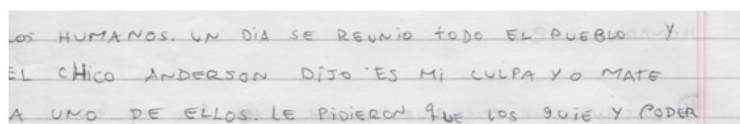 LOS HUMANOS. UN DiA SE REUNiO tODO EL PUEBLO Y
EL CHiCO ANDERSON DiJO ES Mi CULPA YO MATE
A UNO DE ELLOS. LE PiDiERON qUE LOS guiE Y PODER